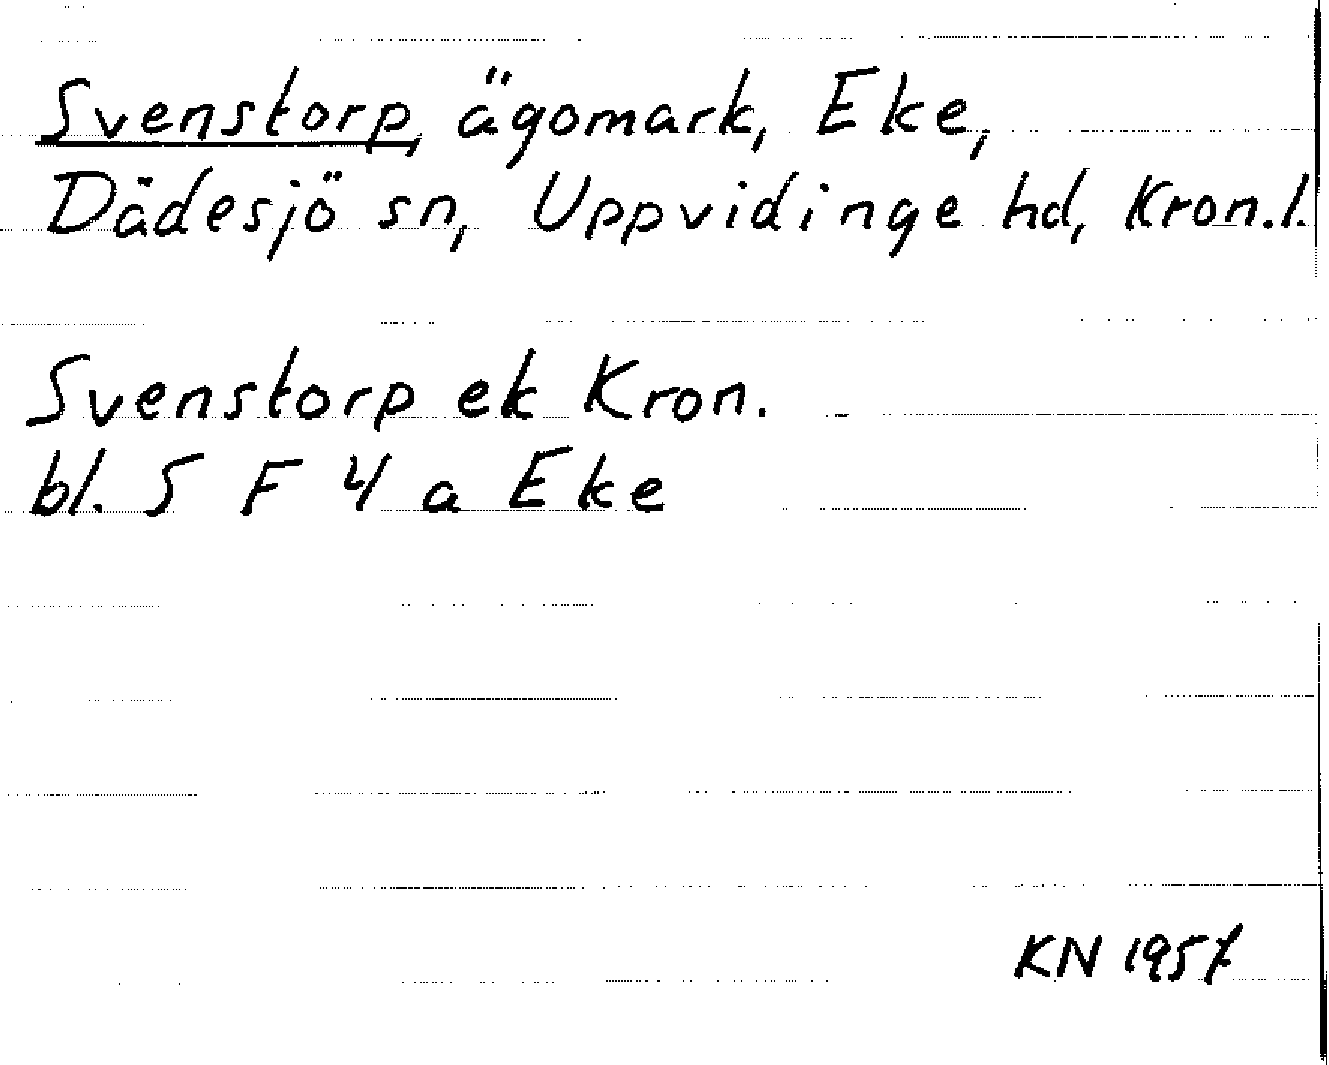 Svenstorp, ägomark, Eke,
Dädesjö sn, Uppvidinge hd, Kron.l.
Svenstorp ek Kron.
bl. 5 F 4 a Eke
KN 1957